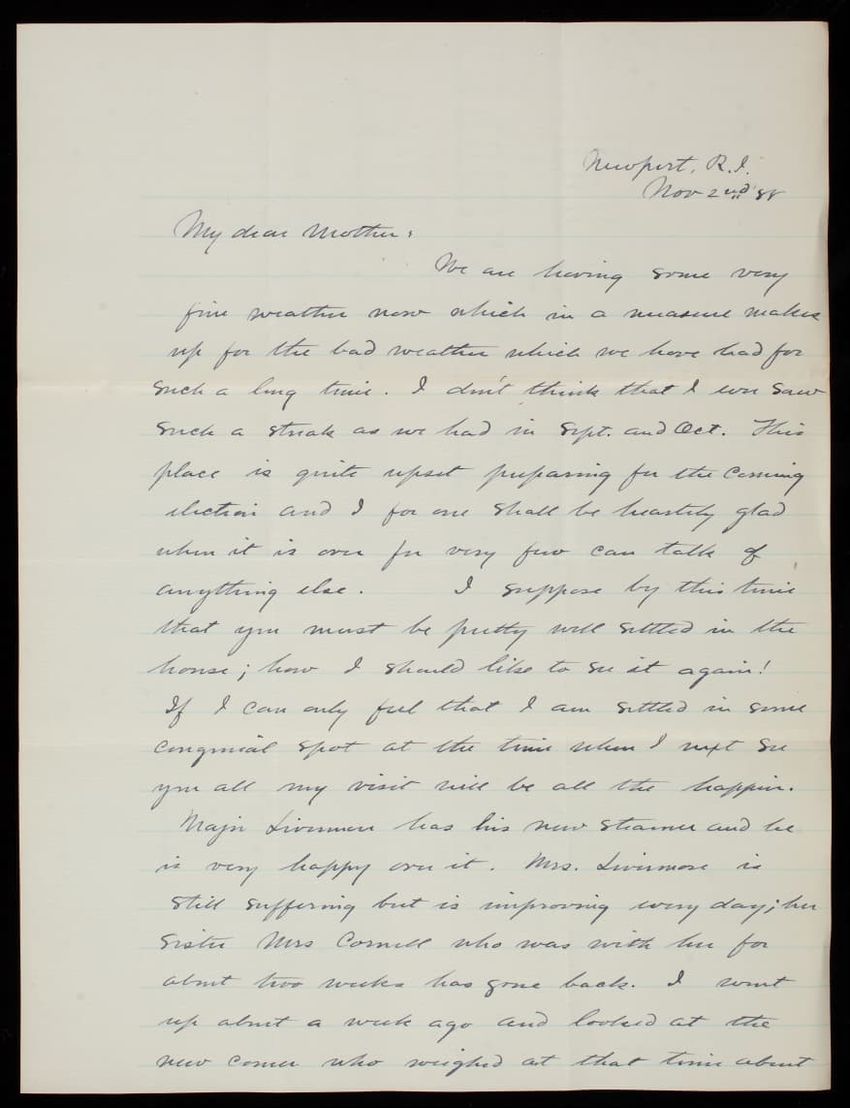 Newport, R.I.
Nov 2nd '88
My dear Mother:
We are having some very
fine weather now which in a measure makes
up for the bad weather which we have had for
such a long time. I don't think that I ever saw
such a streak as we had in Sept. and Oct. This
place is quite upset preparing for the coming
election and I for one shall be heartily glad
when it is over for very few can talk of
anything else. I suppose by this time
that you must be pretty well settled in the
house; how I should like to see it again!
If I can only feel that I am settled in some
congenial spot at the time when I next see
you all my visit will be all the happier.
Major Livermore has his new steamer and he
is very happy over it. Mrs. Livermore is
still suffering but is improving every day; her
sister Mrs Cornell who was with her for
about two weeks has gone back. I went
up about a week ago and looked at the
new comer who weighed at that time about